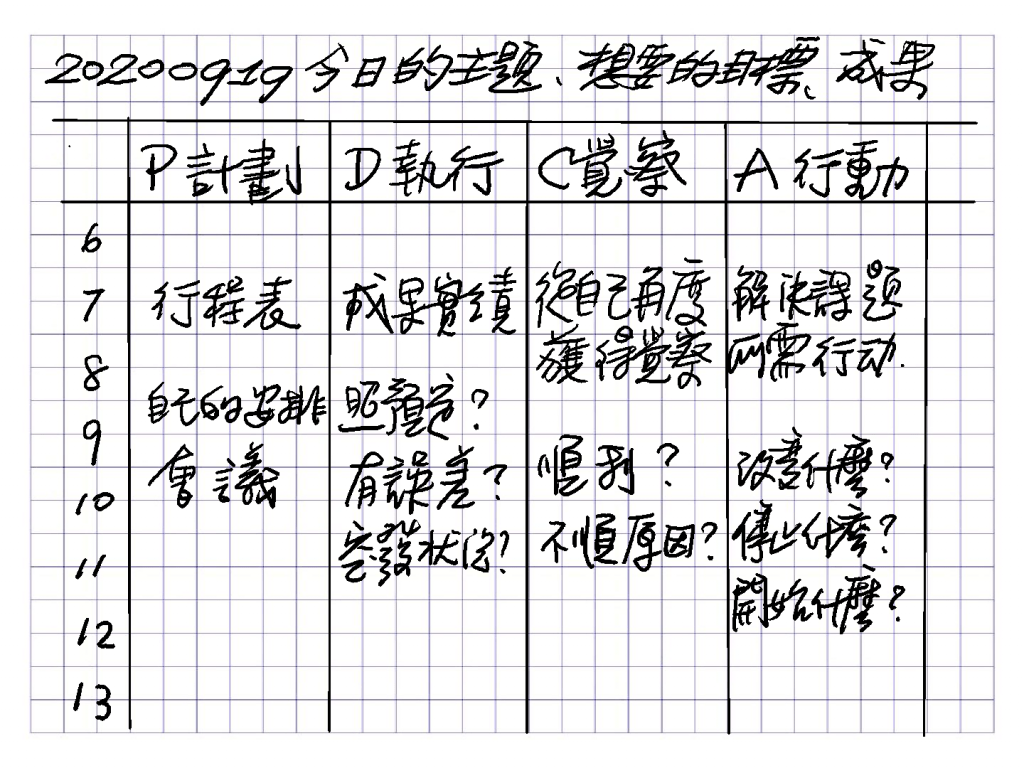 20200919 今日的主題、想要的目標、成果
P計劃 D執行 C覺察 A行動
6
7 行程表 成果實績 從自己角度 解決課題
獲得覺察 所需行动.
8
自己的安排 照預定?
9
會議 有誤差? 順利? 改變什麼?
10
突發状況? 不順原因? 停止什麼?
11
開始什麼?
12
13